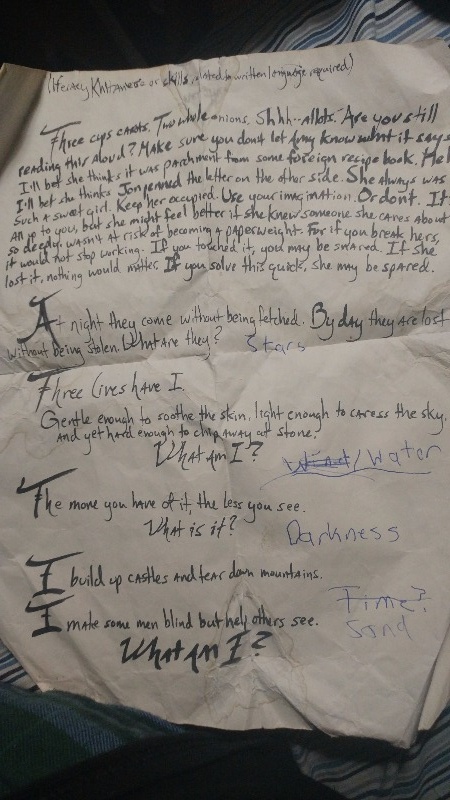 (literacy, or skills related to written language required)
Three cups carrots. Two whole onions. Shhh--allots. Are you still
reading this aloud? Make sure you don't let Amy know what it says.
I'll bet she thinks it was parchment from some foreign recipe book.
I'll bet she thinks Jon penned the letter on the other side. She always was
such a sweet girl. Keep her occupied. Use your imagination. Or dont. It's
All up to you, but she might feel better if she knew someone she cares about
so deeply, wasn't at risk of becoming a paperweight. For if you break hers,
it would not stop working. If you touched it, you may be snared. If she
lost it, nothing would matter. If you solve this quick, she may be spared.
At night they come without being fetched. By day they are lost
without being stolen. What are they? Stars
Three lives have I.
Gentle enough to soothe the skin, light enough to caress the sky,
And yet hard enough to chip away at stone.
What am I? Wind/Water
The more you have of it, the less you see.
What is it? Darkness
I build up castles and tear down mountains.
Time?
I make some men blind but help others see.
Sand
What Am I?